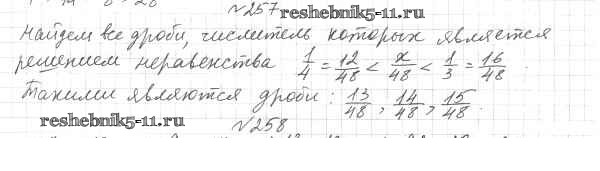 №257
reshebnik5-11.ru
Найдем все дроби, числитель которых является
решением неравенства 1/4 = 12/48 < x/48 < 1/3 = 16/48.
Такими являются дроби: 13/48, 14/48, 15/48.
reshebnik5-11.ru
№258